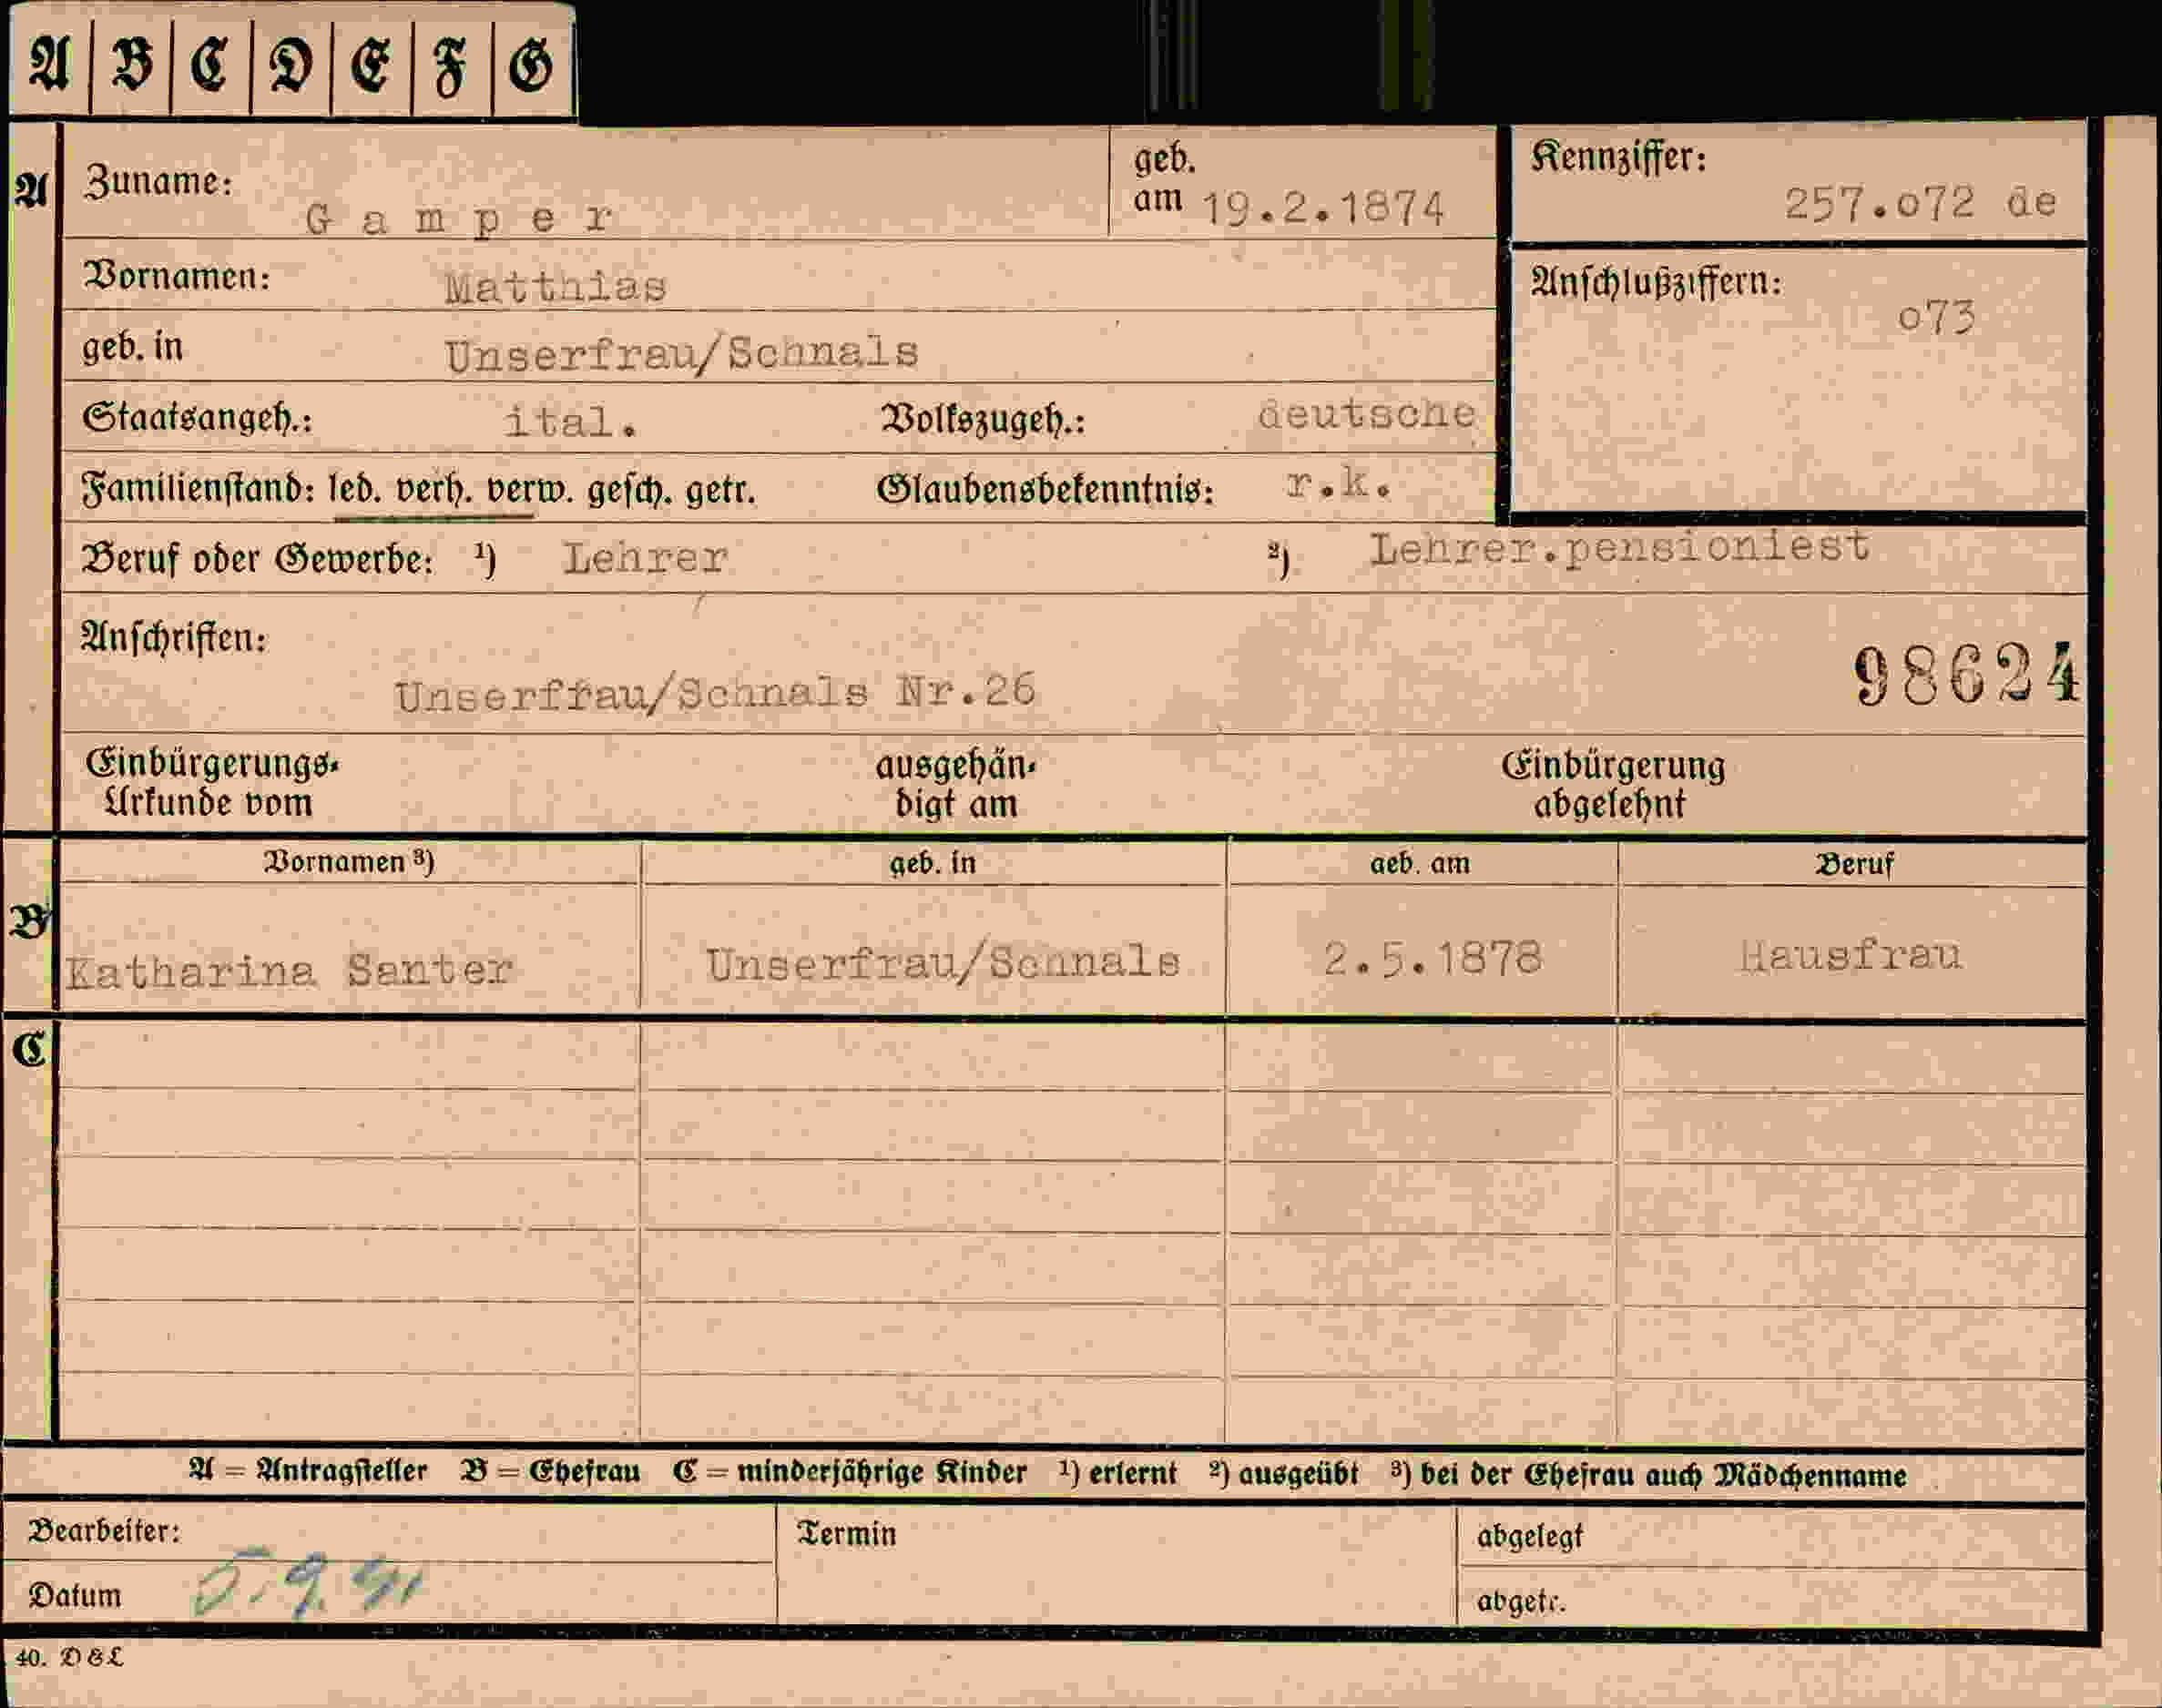 A B C D E F G
A
Zuname: Gamper
geb. am 19.2.1874
Kennziffer: 257.o72 de
Vornamen: Matthias
Anschlußziffern: o73
geb. in Unserfrau/Schnals
Staatsangeh.: ital. Volkszugeh.: deutsche
Familienstand: led. verh. verw. gesch. getr. Glaubensbekenntnis: r.k.
Beruf oder Gewerbe: ¹) Lehrer ²) Lehrer.pensioniest
Anschriften:
98624
Unserffau/Schnals Nr.26
Einbürgerungs- ausgehän- Einbürgerung
Urkunde vom digt am abgelehnt
Vornamen ³) geb. in geb. am Beruf
B
Katharina Santer Unserfrau/Schnals 2.5.1878 Hausfrau
C
A = Antragsteller B = Ehefrau C = minderjährige Kinder ¹) erlernt ²) ausgeübt ³) bei der Ehefrau auch Mädchenname
Bearbeiter: Termin abgelegt
Datum 5.9.41 abgetr.
40. D & L